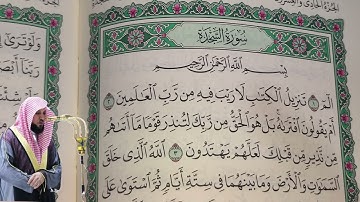 الجزء الحادي والعشرون
سُورَةُ السَّجْدَةِ
بِسْمِ اللَّهِ الرَّحْمَٰنِ الرَّحِيمِ
الٓمٓ ١ تَنزِيلُ الْكِتَٰبِ لَا رَيْبَ فِيهِ مِن رَّبِّ الْعَٰلَمِينَ ٢
أَمْ يَقُولُونَ افْتَرَىٰهُ بَلْ هُوَ الْحَقُّ مِن رَّبِّكَ لِتُنذِرَ قَوْمًا مَّآ أَتَىٰهُم
مِّن نَّذِيرٍ مِّن قَبْلِكَ لَعَلَّهُمْ يَهْتَدُونَ ٣ اللَّهُ الَّذِي خَلَقَ
السَّمَٰوَٰتِ وَالْأَرْضَ وَمَا بَيْنَهُمَا فِي سِتَّةِ أَيَّامٍ ثُمَّ اسْتَوَىٰ عَلَى
وَلَوْ تَرَىٰ
رَبَّنَآ أَبْصَرْ